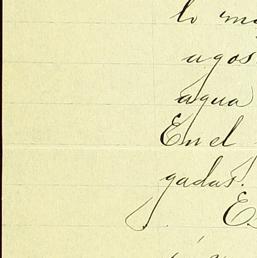 lo m
agos
agua
En el
gadas.
E